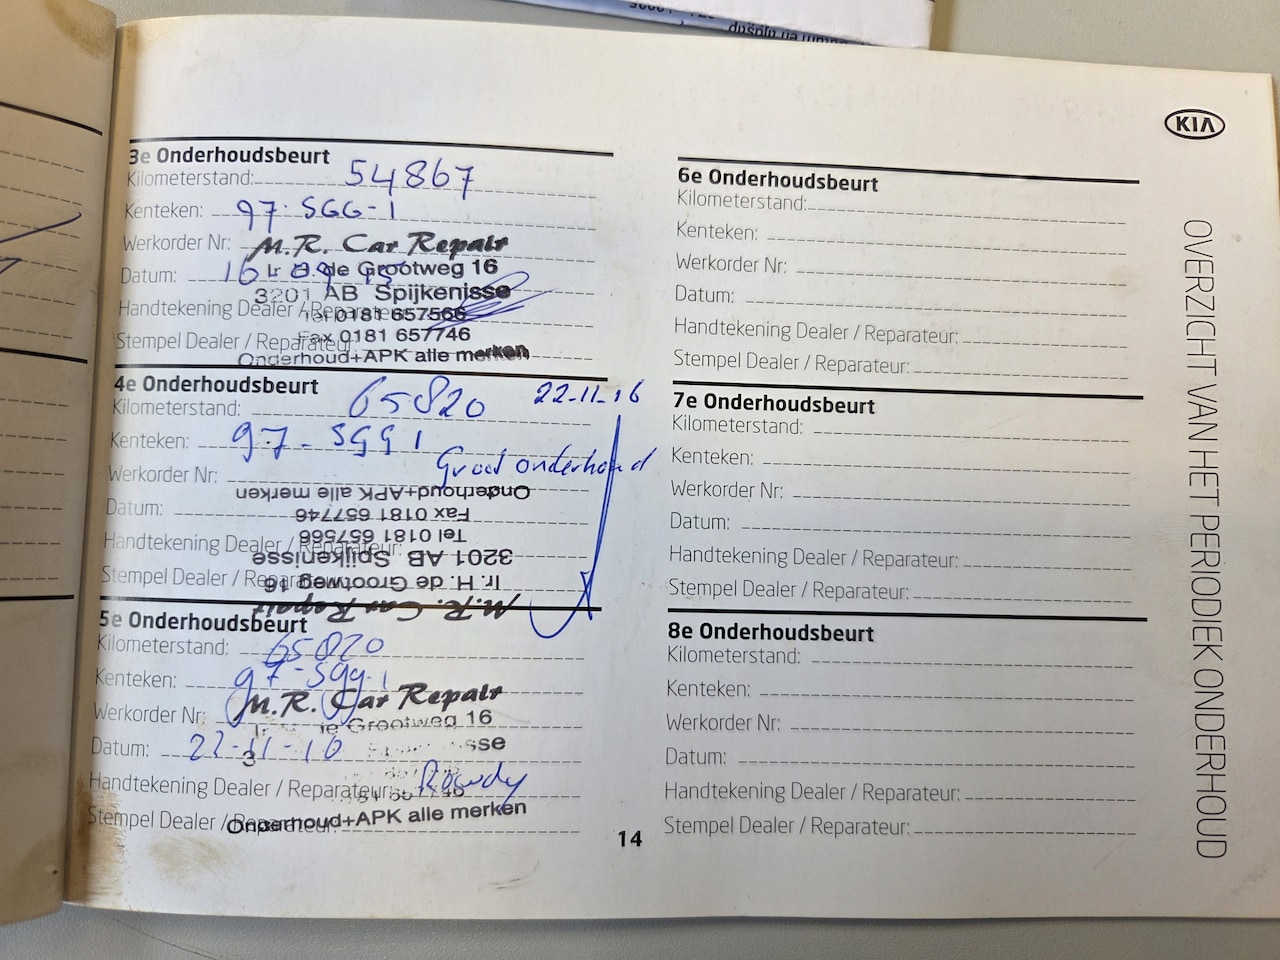 KIA
OVERZICHT VAN HET PERIODIEK ONDERHOUD
3e Onderhoudsbeurt
Kilometerstand: 54867
Kenteken: 97-SGG-1
Werkorder Nr:
Datum: 16 09 15
Handtekening Dealer / Reparateur:
Stempel Dealer / Reparateur:
M.R. Car Repair
Ir. H. de Grootweg 16
3201 AB Spijkenisse
Tel 0181 657566
Fax 0181 657746
Onderhoud+APK alle merken
4e Onderhoudsbeurt
Kilometerstand: 65820 22-11-16
Kenteken: 97-SGG1
Groot onderhoud
Werkorder Nr:
Datum:
Handtekening Dealer / Reparateur:
Stempel Dealer / Reparateur:
M.R. Car Repair
Ir. H. de Grootweg 16
3201 AB Spijkenisse
Tel 0181 657566
Fax 0181 657746
Onderhoud+APK alle merken
5e Onderhoudsbeurt
Kilometerstand: 65820
Kenteken: 97-SGG-1
Werkorder Nr:
Datum: 22-11-16
Handtekening Dealer / Reparateur: Rowdy
Stempel Dealer / Reparateur:
M.R. Car Repair
de Grootweg 16
Onderhoud+APK alle merken
6e Onderhoudsbeurt
Kilometerstand:
Kenteken:
Werkorder Nr:
Datum:
Handtekening Dealer / Reparateur:
Stempel Dealer / Reparateur:
7e Onderhoudsbeurt
Kilometerstand:
Kenteken:
Werkorder Nr:
Datum:
Handtekening Dealer / Reparateur:
Stempel Dealer / Reparateur:
8e Onderhoudsbeurt
Kilometerstand:
Kenteken:
Werkorder Nr:
Datum:
Handtekening Dealer / Reparateur:
Stempel Dealer / Reparateur:
14